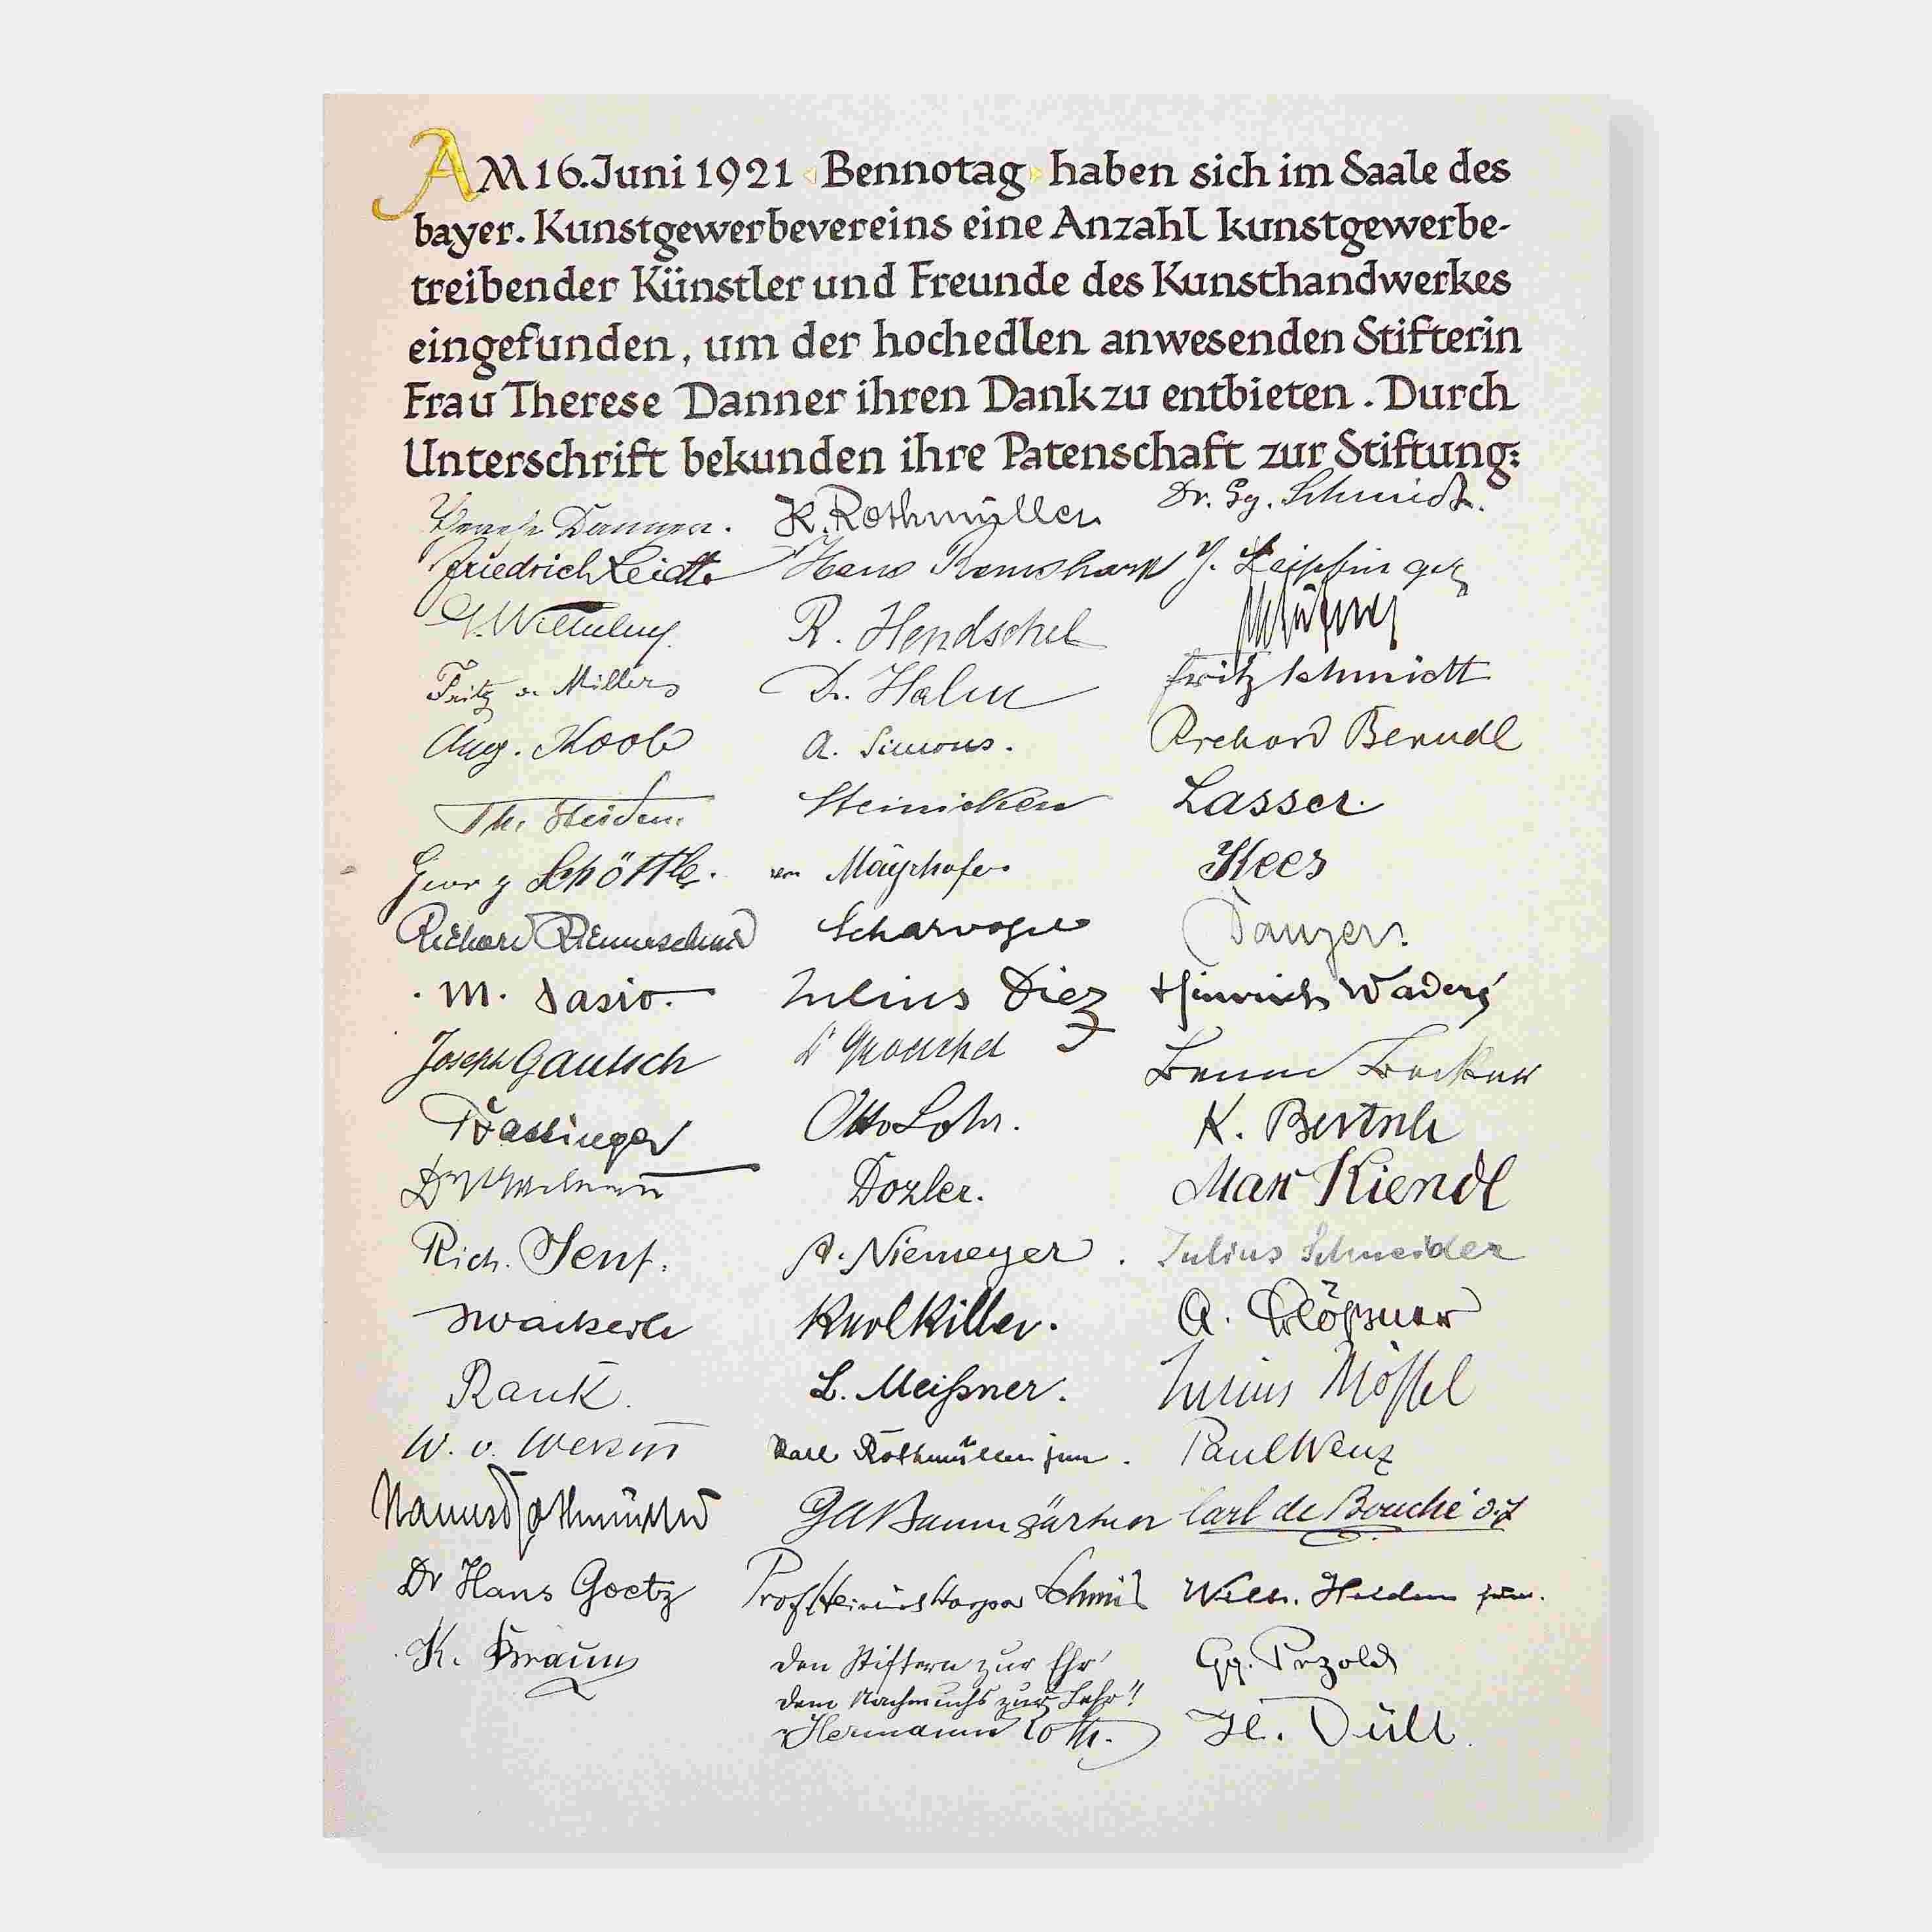 AM 16. Juni 1921 ‹Bennotag› haben sich im Saale des
bayer. Kunstgewerbevereins eine Anzahl kunstgewerbe-
treibender Künstler und Freunde des Kunsthandwerkes
eingefunden, um der hochedlen anwesenden Stifterin
Frau Therese Danner ihren Dank zu entbieten. Durch
Unterschrift bekunden ihre Patenschaft zur Stiftung:
Therese Danner. K. Rothmüller Dr. Gg. Schmidt.
Friedrich Hans
R. Hendschel
Fritz v. Miller Dr. Halm Fritz Schmidt
Aug. Koob A. Simons. Richard Berndl
Th. Heiden. Steinicken Lasser.
Georg Schöttle. von Mayrhofer Kees
Richard Riemerschmid Scharvogel Danzer.
M. Dasio. Julius Diez Heinrich Waderé
Joseph Gautsch Dr Benno Becker
Otto Lohr. K. Bertsch
Dozler. Max Kiendl
Rich. A. Niemeyer. Julius Schneider
Wackerle Karl Killer. A.
Rank. L. Meißner. Julius Mössel
W. v. Wersin Karl Rothmüller jun. Paul Wenz
Rothmüller Baumgärtner Carl de Bouché d. J.
Dr Hans Goetz Prof Schmid Wilh. Heiden jun.
K. Braun Den Stiftern zur Ehr' Gg. Pezold
Dem Nachwuchs zur Lehr'!
Hermann Roth. H. Düll.